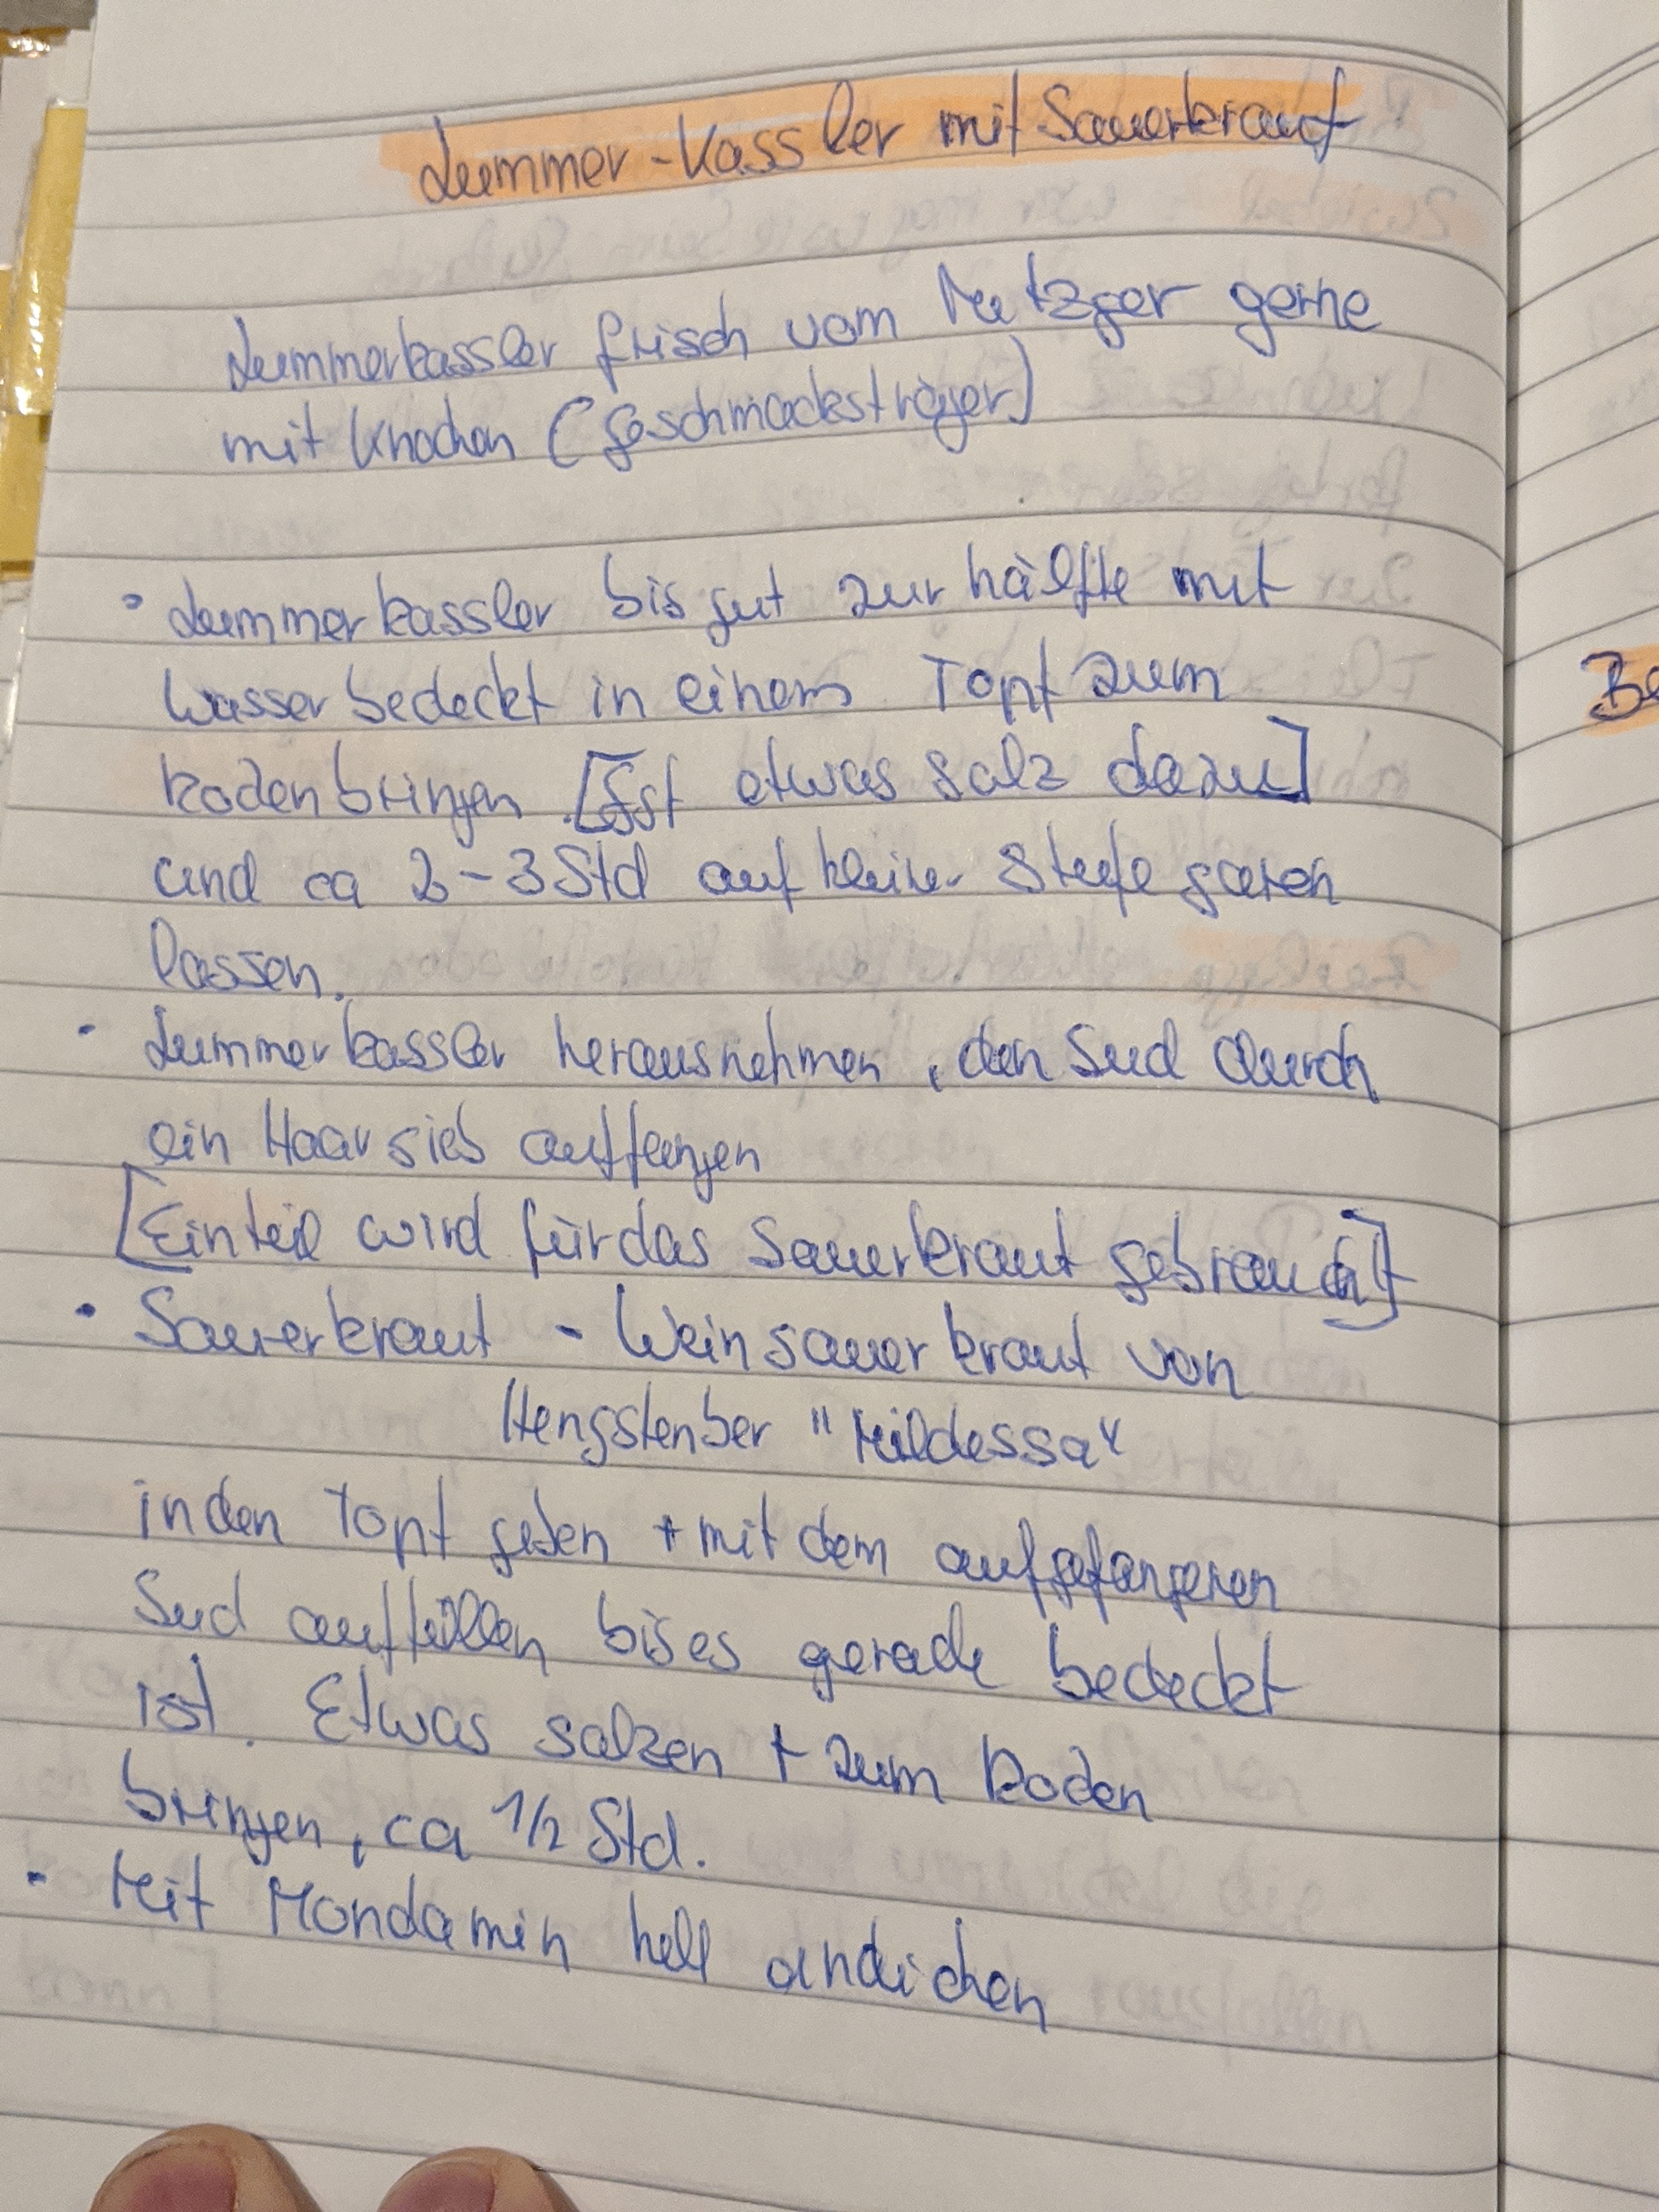 Lummer-Kassler mit Sauerkraut
Lummerkassler frisch vom Metzger gerne
mit Knochen (Geschmacksträger)
• Lummerkassler bis gut zur hälfte mit
Wasser bedeckt in einem Topf zum
Koden bringen [Ggf etwas Salz dazu]
und ca 2-3 Std auf kleiner Stufe garen
lassen.
• Lummerkassler herausnehmen, den Sud durch
ein Haarsieb auffangen
[Ein teil wird für das Sauerkraut gebraucht]
• Sauerkraut - Weinsauerkraut von
Hengstenber "Mildessa"
in den Topf geben + mit dem aufgefangenen
Sud auffüllen bis es gerade bedeckt
ist. Etwas salzen + zum Koden
bringen, ca 1/2 Std.
• Mit Mondamin hell andichen
Be